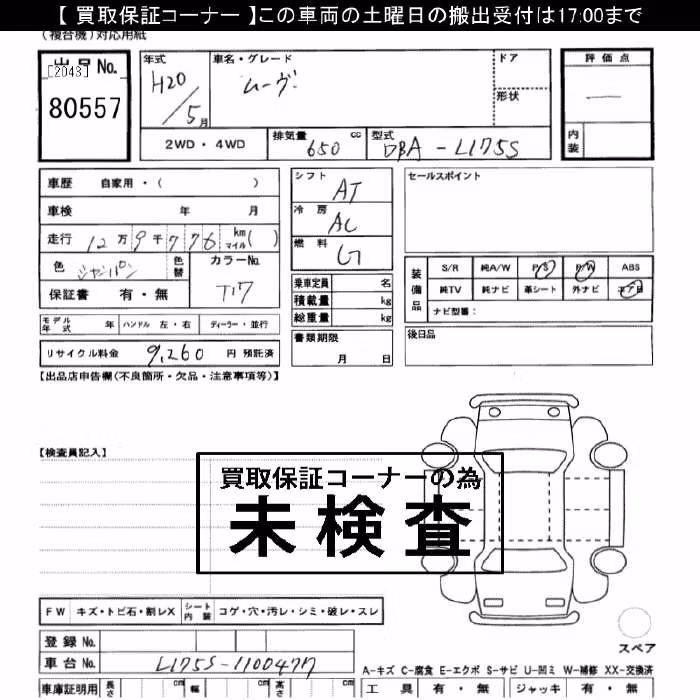 【 買取保証コーナー 】この車両の土曜日の搬出受付は17:00まで
(複合機)対応用紙
出品No. [2043] 80557
年式 H20/5月
車名・グレード ムーヴ
ドア
形状
評価点 —
内装
2WD・4WD
排気量 650 cc
型式 DBA-L175S
車歴 自家用・( )
車検 年 月
走行 12万9千776 km マイル( )
色 シャンパン 色替
カラーNo. T17
保証書 有・無
シフト AT
冷房 AC
燃料 G
乗車定員 名
積載量 kg
総重量 kg
書類期限 月 日
セールスポイント
装備品 S/R 純A/W P/S P/W ABS
純TV 純ナビ 革シート 外ナビ エア白
ナビ型番:
後日品
モデル年式 年 ハンドル 左・右 ディーラー・並行
リサイクル料金 9,260 円 預託済
【出品店申告欄(不良箇所・欠品・注意事項等)】
【検査員記入】
買取保証コーナーの為
未検査
FW キズ・トビ石・割レX シート内装 コゲ・穴・汚レ・シミ・破レ・スレ
スペア
登録No.
車台No. L175S-1100477
A-キズ C-腐食 E-エクボ S-サビ U-凹ミ W-補修 XX-交換済
車庫証明用 長さ cm 幅 cm 高さ cm
工具 有・無 ジャッキ 有・無